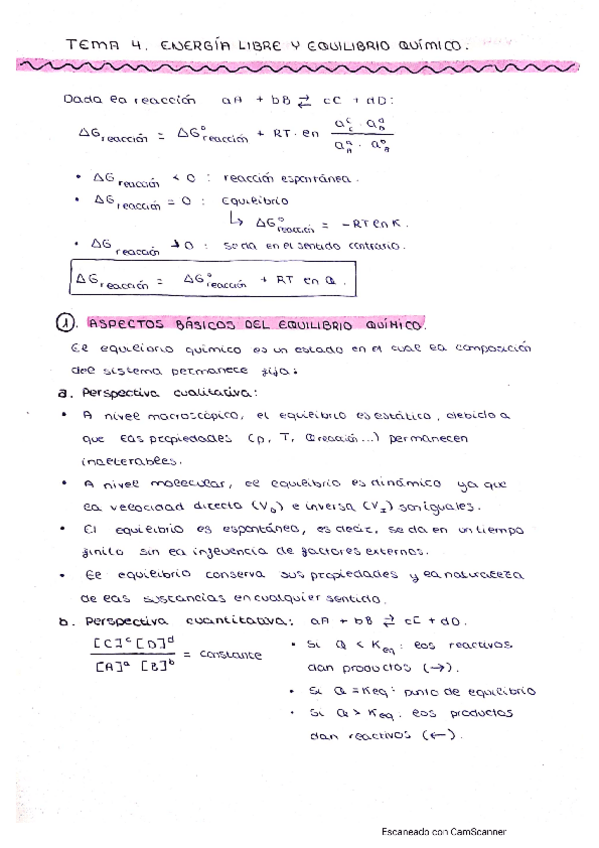 TEMA 4. ENERGÍA LIBRE Y EQUILIBRIO QUÍMICO.
Dada la reacción aA + bB ⇄ cC + dD:
ΔG reacción = ΔG° reacción + RT · ln (a_C^c · a_D^d) / (a_A^a · a_B^b)
• ΔG reacción < 0 : reacción espontánea.
• ΔG reacción = 0 : equilibrio
↳ ΔG° reacción = -RT ln K.
• ΔG reacción > 0 : se da en el sentido contrario.
ΔG reacción = ΔG° reacción + RT ln Q.
①. ASPECTOS BÁSICOS DEL EQUILIBRIO QUÍMICO.
El equilibrio químico es un estado en el cual la composición
del sistema permanece fija:
a. Perspectiva cualitativa:
• A nivel macroscópico, el equilibrio es estático, debido a
que las propiedades (p, T, Q reacción...) permanecen
inalterables.
• A nivel molecular, el equilibrio es dinámico ya que
la velocidad directa (V_D) e inversa (V_I) son iguales.
• El equilibrio es espontáneo, es decir, se da en un tiempo
finito sin la influencia de factores externos.
• El equilibrio conserva sus propiedades y la naturaleza
de las sustancias en cualquier sentido.
b. Perspectiva cuantitativa: aA + bB ⇄ cC + dD.
[C]^c [D]^d / [A]^a [B]^b = constante
• Si Q < Keq : los reactivos
dan productos (→).
• Si Q = Keq : punto de equilibrio
• Si Q > Keq : los productos
dan reactivos (←).
Escaneado con CamScanner